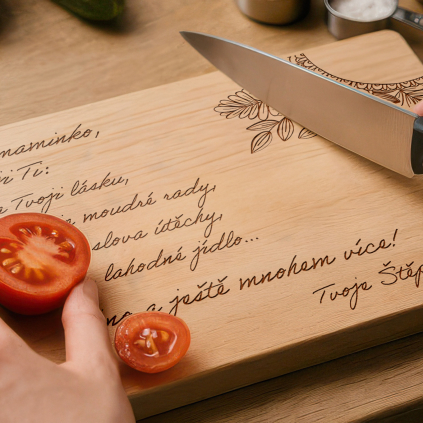 maminko,
Ti:
Tvoji lásku,
moudré rady,
slova útěchy,
lahodné jídlo...
a ještě mnohem více!
Tvoje Štěp